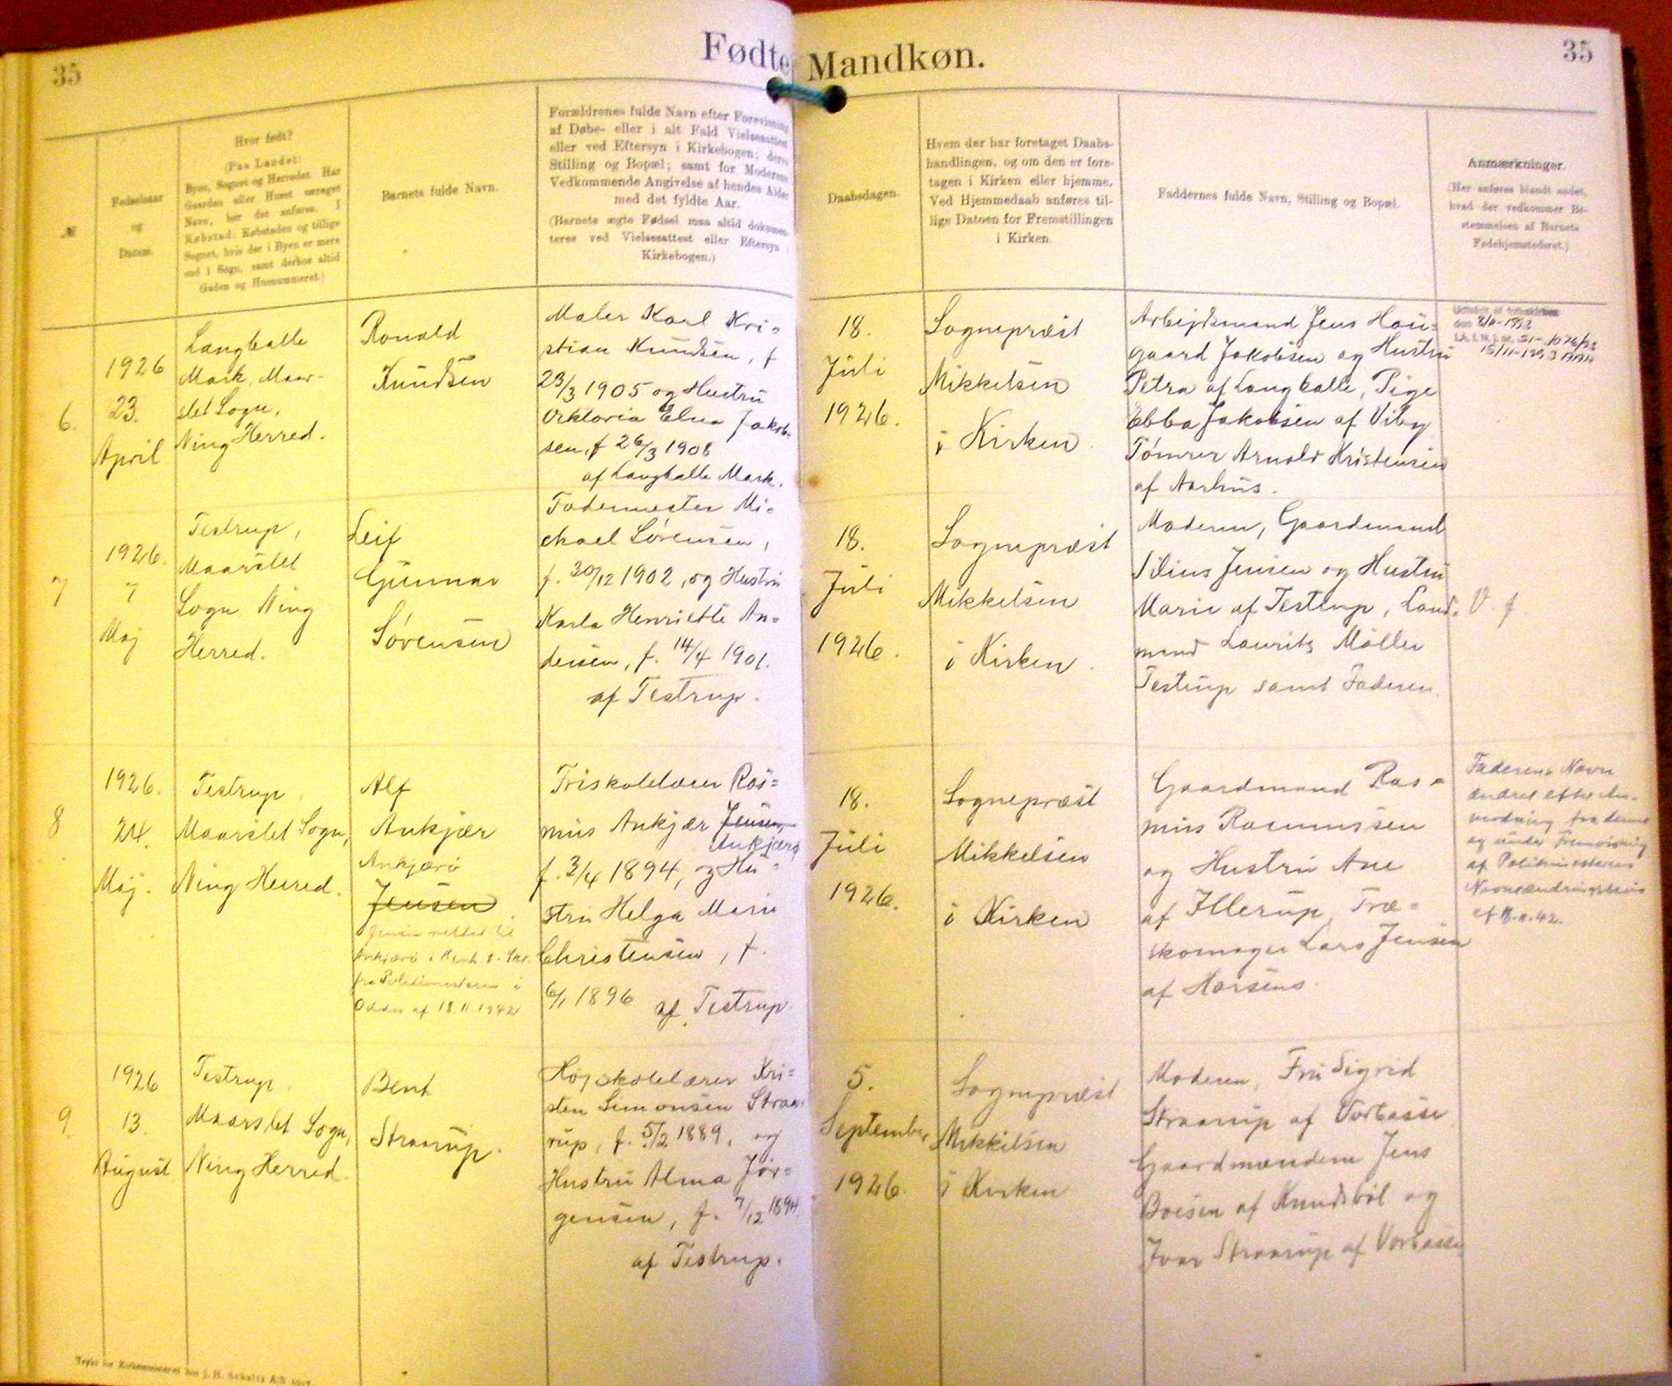 35
Fødte Mandkøn.
35
№
Fødselsaar
og
Datum.
Hvor født?
(Paa Landet:
Byen, Sognet og Herredet. Har
Gaarden eller Huset særeget
Navn, bør det anføres. I
Købstad: Købstadens og tillige
Sognet, hvis der i Byen er mere
end 1 Sogn, samt derhos altid
Gaden og Husnummeret.)
Barnets fulde Navn.
Forældrenes fulde Navn efter Forevisning
af Døbe- eller i alt Fald Vielsesattest
eller ved Eftersyn i Kirkebogen; deres
Stilling og Bopæl; samt for Moderens
Vedkommende Angivelse af hendes Alder
med det fyldte Aar.
(Barnets ægte Fødsel maa altid dokumen-
teres ved Vielsesattest eller Eftersyn i
Kirkebogen.)
Daabsdagen.
Hvem der har foretaget Daabs-
handlingen, og om den er fore-
tagen i Kirken eller hjemme.
Ved Hjemmedaab anføres til-
lige Datoen for Fremstillingen
i Kirken.
Faddernes fulde Navn, Stilling og Bopæl.
Anmærkninger.
(Her anføres blandt andet,
hvad der vedkommer Be-
stemmelsen af Barnets
Fødehjemstedsret.)
6.
1926
23.
April
Langballe
Mark, Maar-
slet Sogn,
Ning Herred.
Ronald
Knudsen
Maler Karl Kri-
stian Knudsen, f
23/3 1905 og Hustru
Viktoria Elna Jakob-
sen, f 26/3 1908
af Langballe Mark.
18.
Juli
1926.
Sognepræst
Mikkelsen
i Kirken.
Arbejdsmand Jens Hou-
gaard Jakobsen og Hustru
Petra af Langballe, Pige
Ebba Jakobsen af Viby
Tømrer Arnold Kristensen
af Aarhus.
7
1926.
7
Maj
Testrup,
Maarslet
Sogn Ning
Herred.
Leif
Gunnar
Sørensen
Fodermester Mi-
chael Sørensen,
f. 30/12 1902, og Hustru
Karla Henriette An-
dersen, f. 14/4 1901.
af Testrup.
18.
Juli
1926.
Sognepræst
Mikkelsen
i Kirken.
Moderen, Gaardmand
Jensen og Hustru
Marie af Testrup, Land-
mand Laurits Møller
Testrup samt Faderen.
V. f.
8
1926.
24.
Maj.
Testrup
Maarslet Sogn,
Ning Herred.
Alf
Ankjær
Ankjærø
Jensen
Jensen rettet til
Ankjærø i Henh. t. Skr.
fra Politimesteren i
Odder af 18.11.1942
Friskolelærer Ras-
mus Ankjær Jensen,
Ankjærø
f. 3/4 1894, og Hu-
stru Helga Marie
Christensen, f.
6/1 1896 af Testrup.
18.
Juli
1926.
Sognepræst
Mikkelsen
i Kirken
Gaardmand Ras-
mus Rasmussen
og Hustru Ane
af Illerup, Træ-
skomager Lars Jensen
af Horsens.
Faderens Navn
ændret efter An-
modning fra denne
og under Fremvisning
af Politimesterens
Navneændringsbevis
af 18.11.42.
9.
1926
13.
August
Testrup
Maarslet Sogn,
Ning Herred.
Bent
Straarup.
Højskolelærer Kri-
sten Simonsen Straa-
rup, f. 5/2 1889, og
Hustru Alma Jør-
gensen, f. 7/12 1894.
af Testrup.
5.
September
1926.
Sognepræst
Mikkelsen
i Kirken
Moderen, Fru Sigrid
Straarup af Vorbasse
Gaardmændene Jens
Boesen af Knudsbøl og
Ivar Straarup af Vorbasse